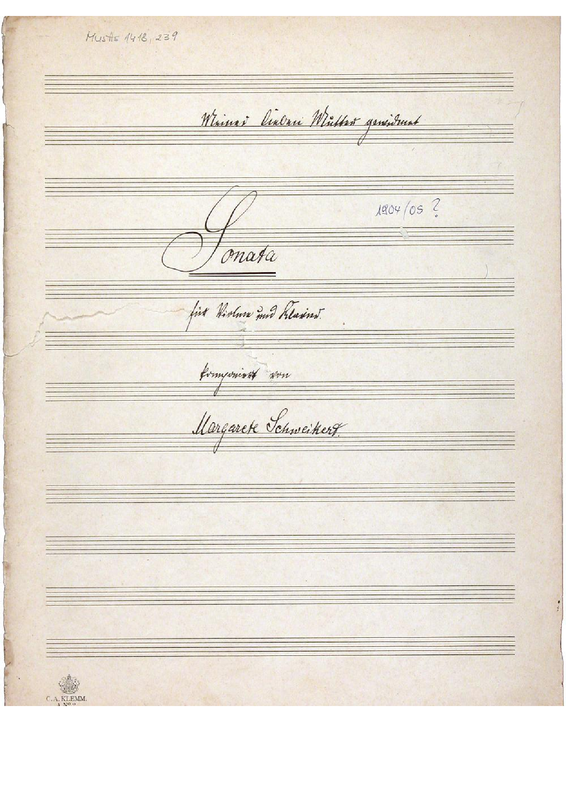 MusHs 1418, 239
Meiner lieben Mutter gewidmet
1904/05 ?
Sonata
für Violine und Klavier.
komponiert von
Margarete Schweikert.
C. A. KLEMM.